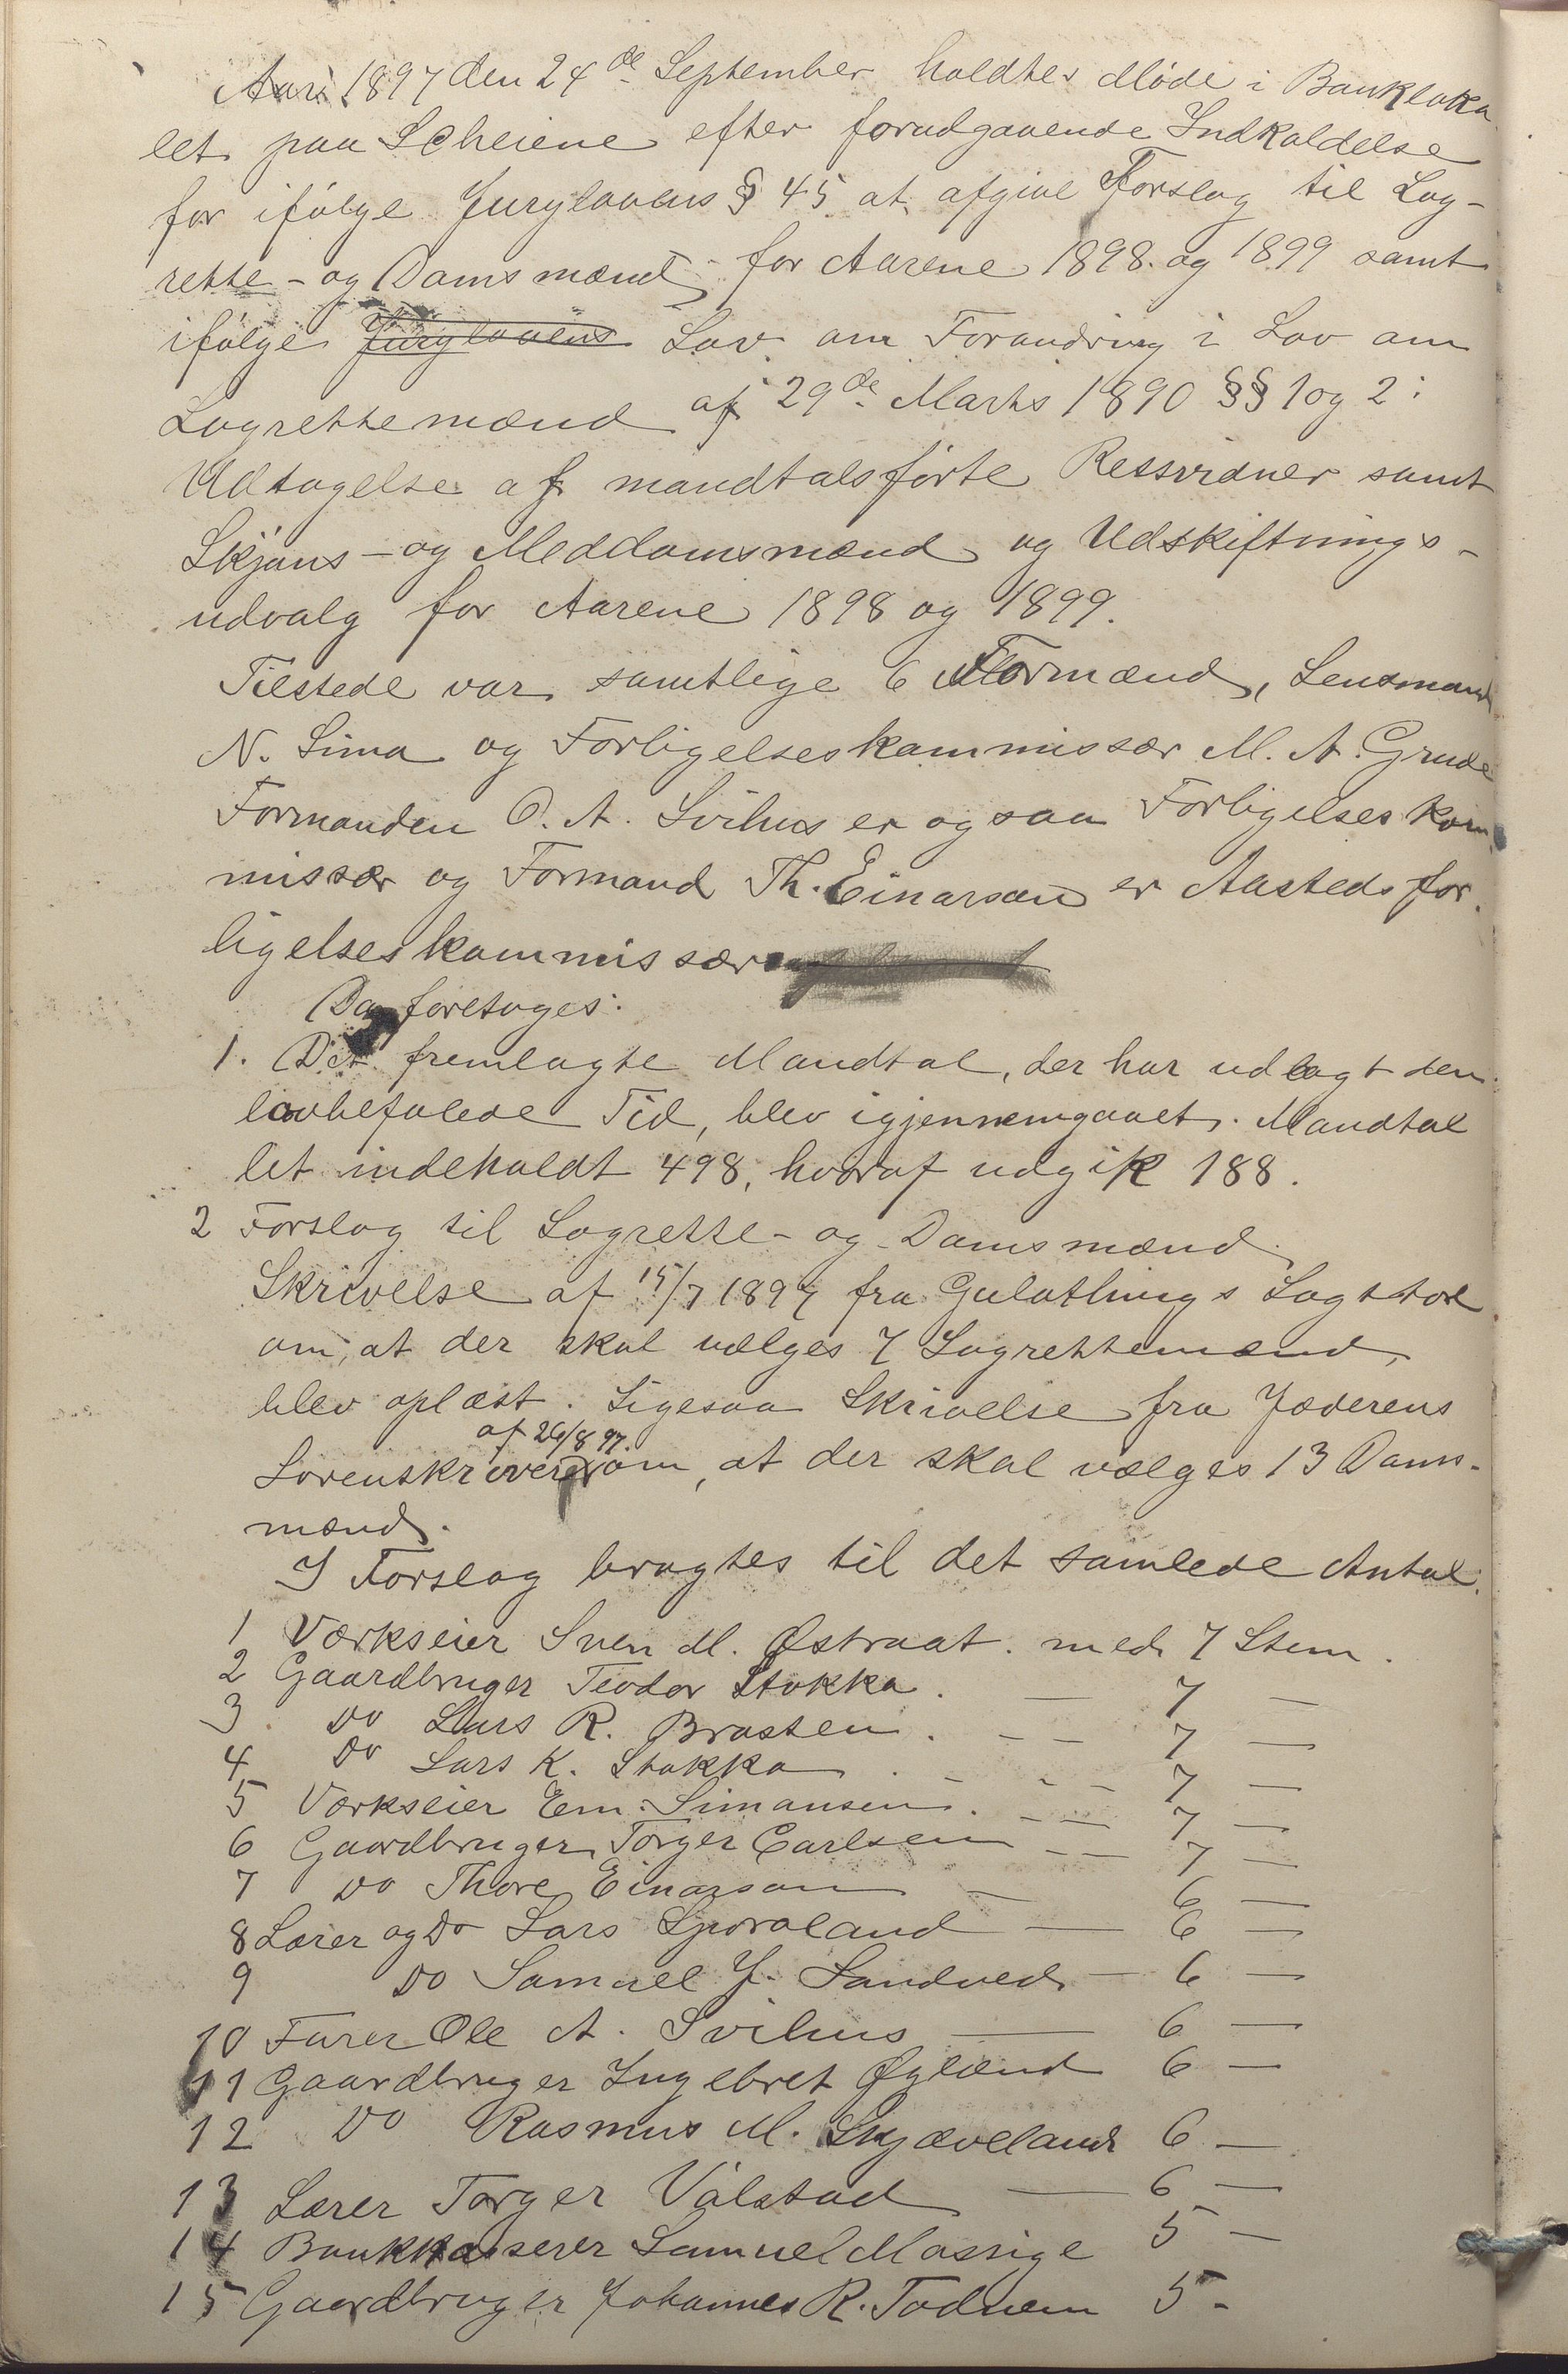 Aar 1897 den 24de September holdtes Møde i Bankloka
let paa Scheiene efter forudgaaende Indkaldelse
for ifølge Jurylovens § 45 at afgive Forslag til Lag-
rette- og Domsmænd for Aarene 1898 og 1899 samt
ifølge Jurylovens Lov om Forandring i Lov om
Lagrettemænd af 29de Marts 1890 §§ 1 og 2:
Udtagelse af mandtalsførte Retsvidner samt
Skjøns- og Meddomsmænd og Udskiftnings-
udvalg for Aarene 1898 og 1899.
Tilstede var samtlige 6 Formænd, Lensmand
N. Sima og Forligelseskommissær M. A. Grude
Formanden O. A. Svihus er ogsaa Forligelseskom
missær og Formand Th. Einarsen er Aastedsfor
ligelseskommissær
Da foretoges:
1. Det fremlagte Mandtal, der har udlagt den
lovbefalede Tid, blev igjennemgaaet. Mandtal
let indeholdt 498, hvoraf udgik 188.
2 Forslag til Lagrette- og Domsmænd
Skrivelse af 15/7 1897 fra Gulathings Lagstol
om, at der skal vælges 7 Lagrettemænd,
blev oplæst. Ligesaa Skrivelse fra Jæderens
af 26/8 97.
Sorenskriveri om, at der skal vælges 13 Doms-
mænd.
I Forslag bragtes til det samlede Antal:
1 Værkseier Sven M. Østraat. med 7 Stem.
2 Gaardbruger Teodor Stokka. — 7 —
3 Do Lars R. Brasten. — — 7 —
4 Do Lars K. Stokka. - - - 7 —
5 Værkseier Em. Simonsen. - — 7 —
6 Gaardbruger Torger Carlsen — — 7 —
7 Do Thore Einarsen — 6 —
8 Lærer og Do Lars Sporaland — 6 —
9 Do Samuel J. Sandved — 6 —
10 Furer Ole A. Svihus — 6 —
11 Gaardbruger Ingebret Øglænd 6 —
12 Do Rasmus M. Skjæveland 6 —
13 Lærer Torger Válstad — 6 —
14 Bankkasserer Samuel Mossige 5 —
15 Gaardbruger Johannes R. Todnem 5 -